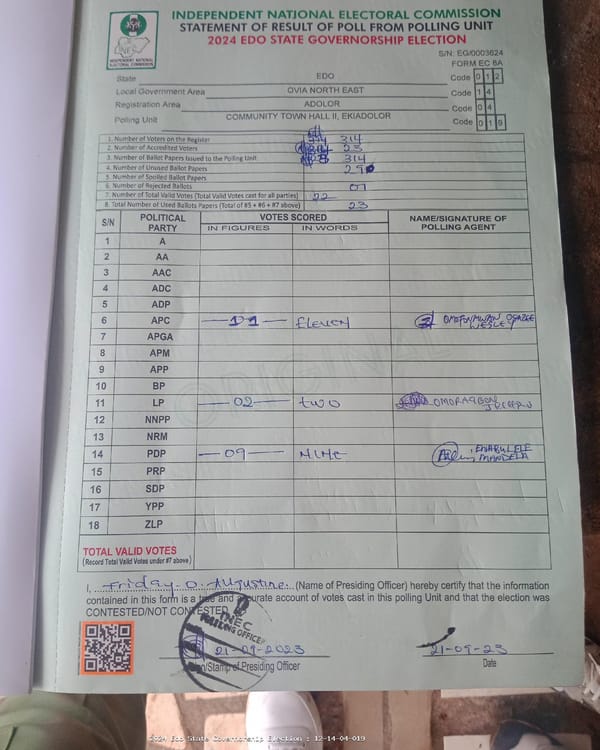 INDEPENDENT NATIONAL ELECTORAL COMMISSION
STATEMENT OF RESULT OF POLL FROM POLLING UNIT
2024 EDO STATE GOVERNORSHIP ELECTION
INEC
INDEPENDENT NATIONAL ELECTORAL COMMISSION
S/N: EG/0003624
FORM EC 8A
State EDO Code 0 1 2
Local Government Area OVIA NORTH EAST Code 1 4
Registration Area ADOLOR Code 0 4
Polling Unit COMMUNITY TOWN HALL II, EKIADOLOR Code 0 1 9
1. Number of Voters on the Register 314
2. Number of Accredited Voters 23
3. Number of Ballot Papers Issued to the Polling Unit 314
4. Number of Unused Ballot Papers
5. Number of Spoiled Ballot Papers
6. Number of Rejected Ballots 01
7. Number of Total Valid Votes (Total Valid Votes cast for all parties) 22
8. Total Number of Used Ballots Papers (Total of #5 + #6 + #7 above) 23
S/N POLITICAL PARTY VOTES SCORED NAME/SIGNATURE OF POLLING AGENT
IN FIGURES IN WORDS
1 A
2 AA
3 AAC
4 ADC
5 ADP
6 APC 11 Eleven WESLEY
7 APGA
8 APM
9 APP
10 BP
11 LP 02 two
12 NNPP
13 NRM
14 PDP 09 Nine MANDELA
15 PRP
16 SDP
17 YPP
18 ZLP
TOTAL VALID VOTES
(Record Total Valid Votes under #7 above)
ORIGINAL
I, Friday O. Augustine (Name of Presiding Officer) hereby certify that the information
contained in this form is a true and accurate account of votes cast in this polling Unit and that the election was
CONTESTED/NOT CONTESTED
INEC
POLLING OFFICER
21-09-2023 21-09-23
Sign/Stamp of Presiding Officer Date
2024 Edo State Governorship Election : 12-14-04-019